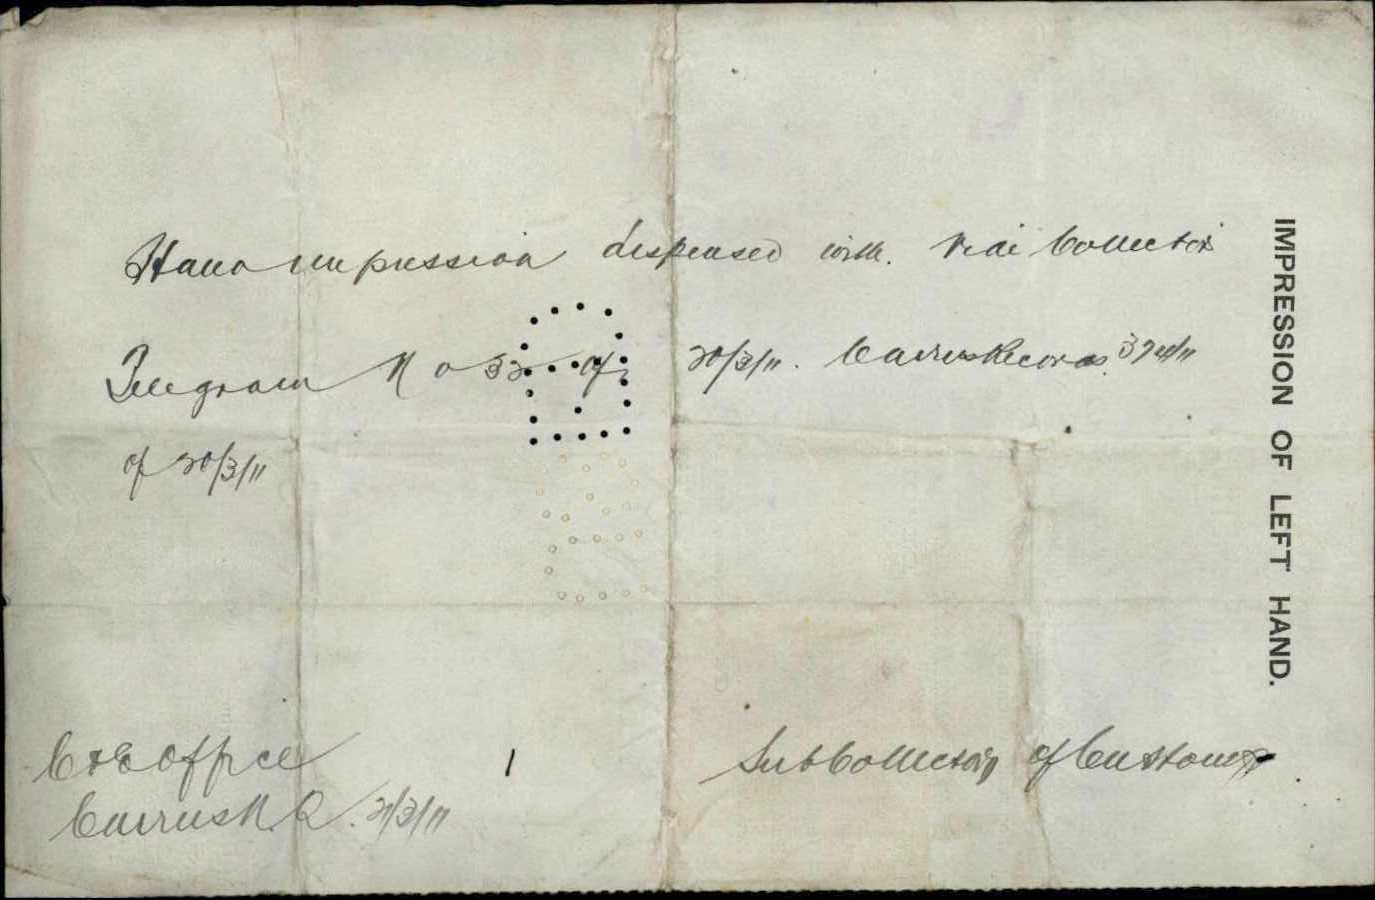 Hand impression dispensed with. Vide Collector
Telegram No 33 of 20/3/11. Cairns Records 37 of 11
of 20/3/11
C & E Office
Cairns N.Q. 21/3/11
Sub Collector of Customs
IMPRESSION OF LEFT HAND.